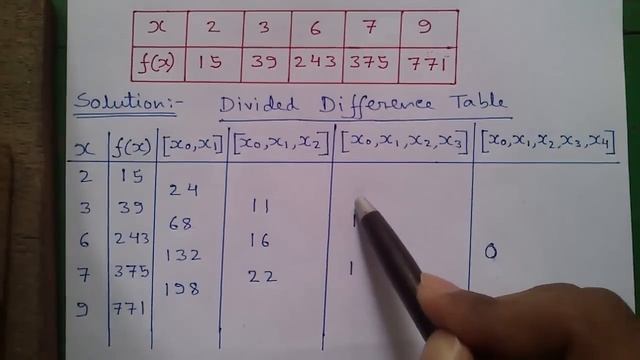 x 2 3 6 7 9
f(x) 15 39 243 375 771
Solution:- Divided Difference Table
x f(x) [x₀,x₁] [x₀,x₁,x₂] [x₀,x₁,x₂,x₃] [x₀,x₁,x₂,x₃,x₄]
2 15
24
3 39 11
68 1
6 243 16 0
132 1
7 375 22
198
9 771